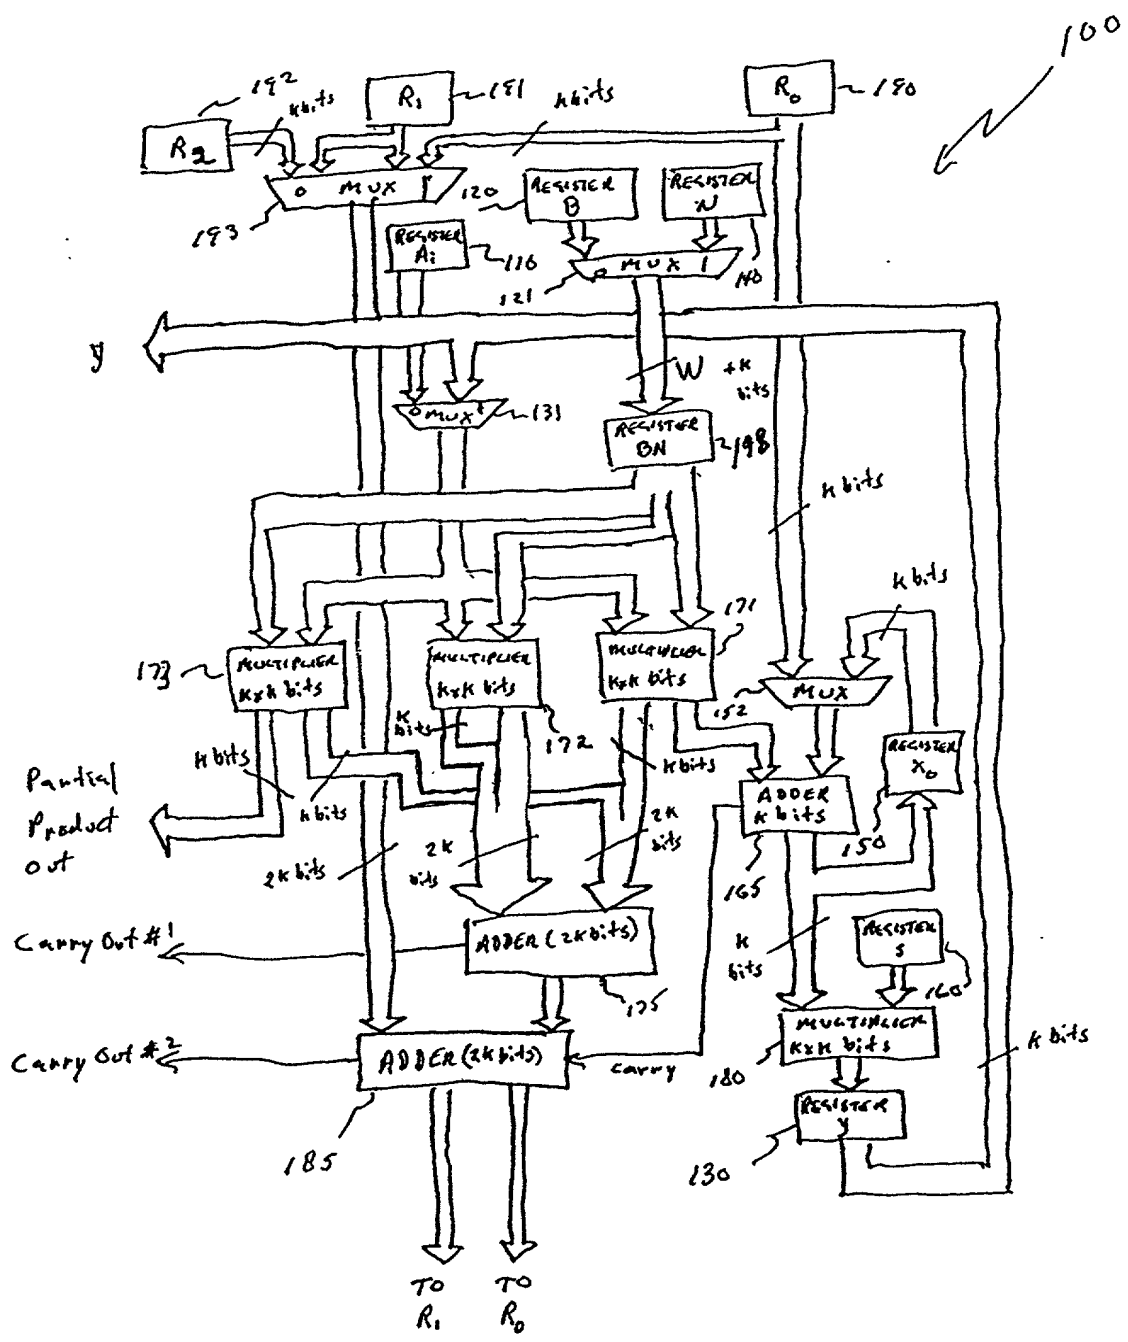 100
192
k bits
R1
191
k bits
R0
190
R2
0 MUX 1
193
120
REGISTER
B
REGISTER
N
140
REGISTER
Ai
110
0 MUX 1
121
y
W + k
bits
0 MUX 1
131
REGISTER
BN
198
k bits
k bits
171
173
MULTIPLIER
k x k bits
MULTIPLIER
k x k bits
172
MULTIPLIER
k x k bits
152
MUX
REGISTER
X0
150
k
bits
k bits
k bits
k bits
Partial
Product
Out
ADDER
k bits
165
2k bits
2k
bits
2k
bits
Carry Out #1
ADDER (2k bits)
175
k
bits
REGISTER
S
160
Carry Out #2
ADDER (2k bits)
185
carry
MULTIPLIER
k x k bits
180
k bits
REGISTER
Y
130
TO
R1
TO
R0